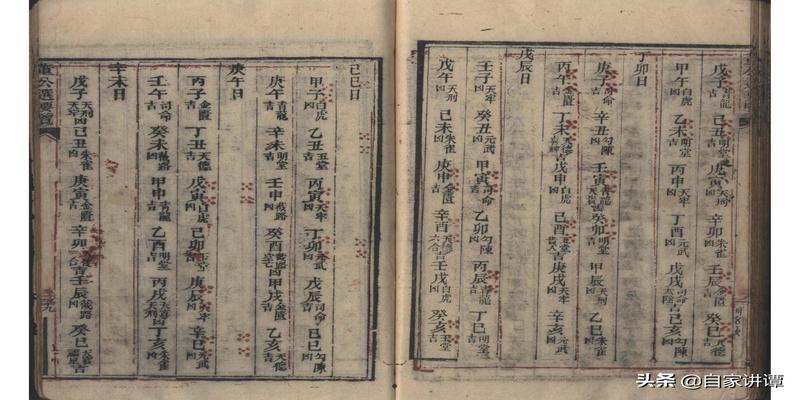 戊子青龍吉 己丑明堂吉 庚寅天刑凶 辛卯朱雀凶 壬辰金匱吉 癸巳天德吉
甲午白虎凶 乙未玉堂吉 丙申天牢凶 丁酉元武凶 戊戌司命吉 己亥勾陳凶
丁卯日
庚子司命吉 辛丑勾陳凶 壬寅青龍吉 癸卯明堂吉 甲辰天刑凶 乙巳朱雀凶
丙午金匱吉 丁未天德吉 戊申白虎凶 己酉玉堂吉 庚戌天牢凶 辛亥元武凶
戊辰日
壬子天牢凶 癸丑元武凶 甲寅司命吉 乙卯勾陳凶 丙辰青龍吉 丁巳明堂吉
戊午天刑凶 己未朱雀凶 庚申金匱吉 辛酉天德六合吉 壬戌白虎凶 癸亥玉堂吉
己巳日
甲子白虎凶 乙丑玉堂吉 丙寅天牢凶 丁卯元武凶 戊辰司命吉 己巳勾陳凶
庚午青龍吉 辛未明堂吉 壬申截路凶 癸酉截路空亡 甲戌金匱吉 乙亥天德吉
庚午日
丙子金匱吉 丁丑天德吉 戊寅白虎凶 己卯玉堂吉 庚辰天牢凶 辛巳元武凶
壬午司命吉 癸未截路凶 甲申青龍吉 乙酉明堂吉 丙戌天刑凶 丁亥朱雀凶
辛未日
戊子天刑凶 己丑朱雀凶 庚寅金匱吉 辛卯合吉 壬辰截路凶 癸巳福星吉
董公選要覽
头条 @自家讲谭